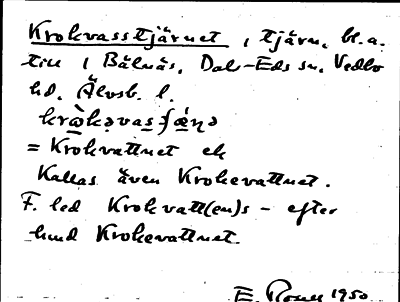 Krokvasstjärnet, tjärn, bl.a.
till 1 Bälnäs, Dals-Eds sn, Vedbo
hd, Älvsb. l.
krὰkəvasʃæ̀ṇə
= Krokvattnet ek
Kallas även Krokevattnet.
F. led Krokvatt(en)s - efter
hund Krokevattnet.
E. 1950